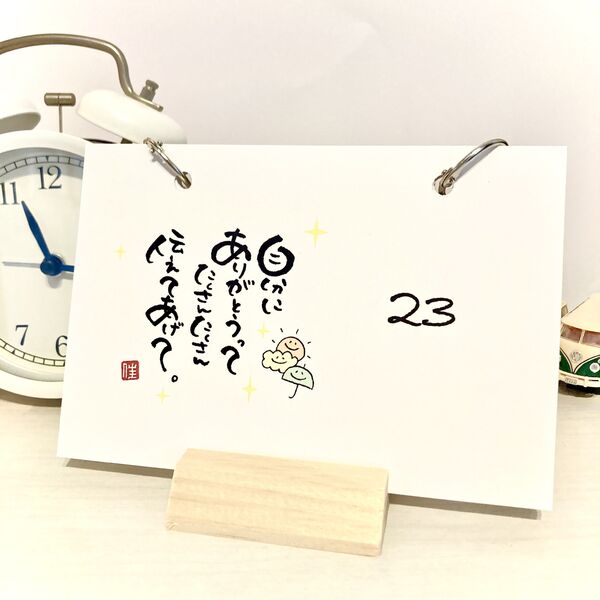 自分に
ありがとうって
たくさんたくさん
伝えてあげて。
佳
23
11
12
10
9
8
7
6